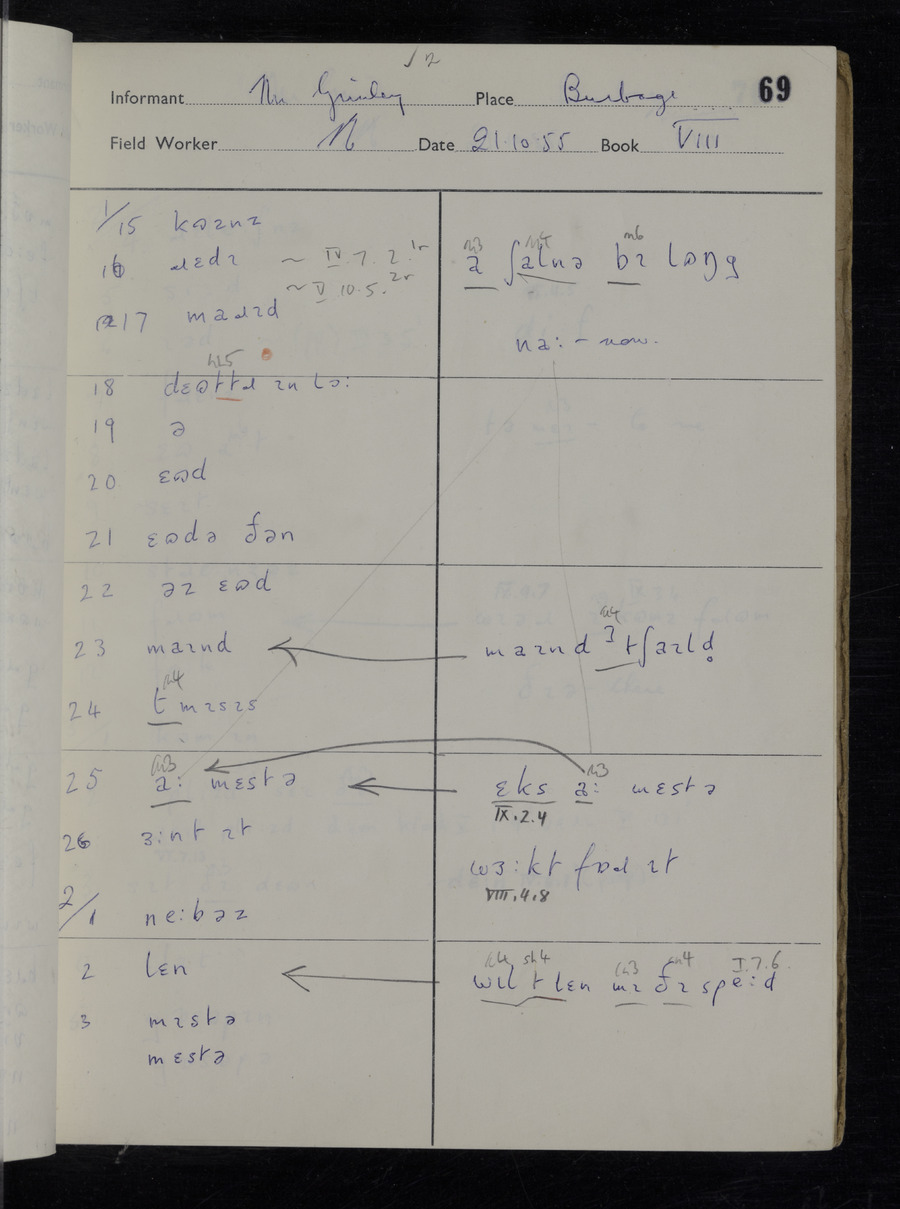 ✓ 2
Informant Mr Grimley Place Burbage 69
Field Worker N Date 21.10.55 Book VIII
1/15 kɷzɪnz
16 ɹɛdɪ ~ IV.7.2 1r
~ V 10.5. 2r
17 maɹɪd
18 dɛɷttɹ ɪn lɔ:
19 ə
20 ɛɷd
21 ɛɷdə ðən
22 əz ɛɷd
23 maɪnd
24 t mɪsɪs
25 a: mɛstə
26 ɜ:nt ɪt
2/1 ne:bəz
2 lɛn
3 mɪstə
mɛstə
a ʃalnə bɪ lɒŋg
na: - now.
maɪnd ʒ tʃaɪld̥
ɛks a: mɛstə
IX.2.4
wɜ:kt fɒɹ ɪt
VIII.4.8
I.7.6
wɪl t lɛn mɪ ðɪ spe:d